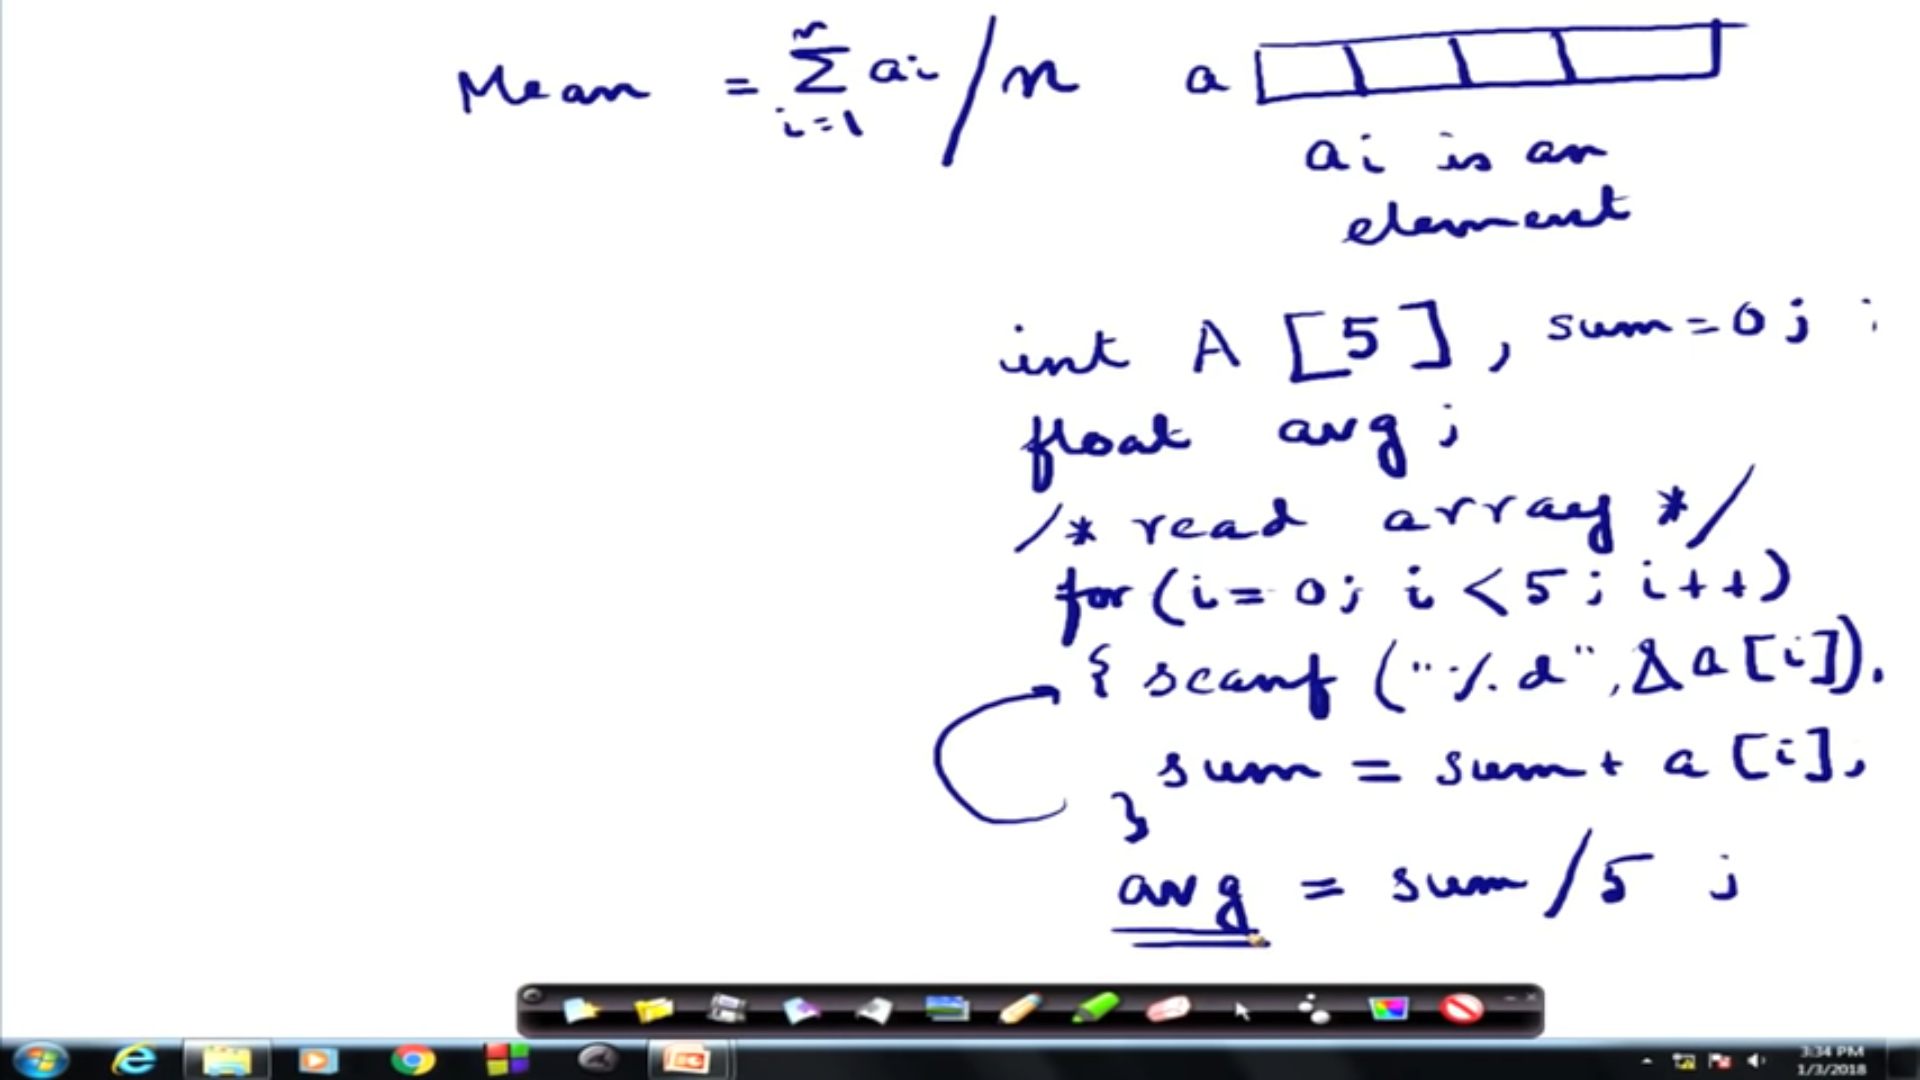 Mean = n∑i=1 ai / n
a
ai is an
element
int A [5], sum=0;
float avg;
/* read array */
for (i=0; i<5; i++)
{ scanf ("%d", &a[i]).
sum = sum + a[i],
}
avg = sum/5 ;
3:34 PM
1/3/2018